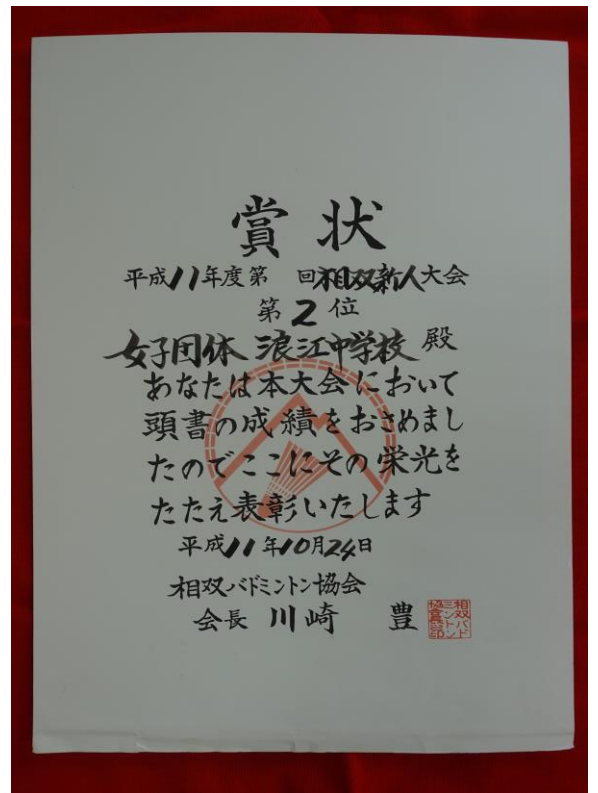 賞状
平成11年度第 回相双新人大会
第2位
女子団体 浪江中学校 殿
あなたは本大会において
頭書の成績をおさめまし
たのでここにその栄光を
たたえ表彰いたします
平成11年10月24日
相双バドミントン協会
会長 川崎 豊
相双バド
ミントン
協会長印